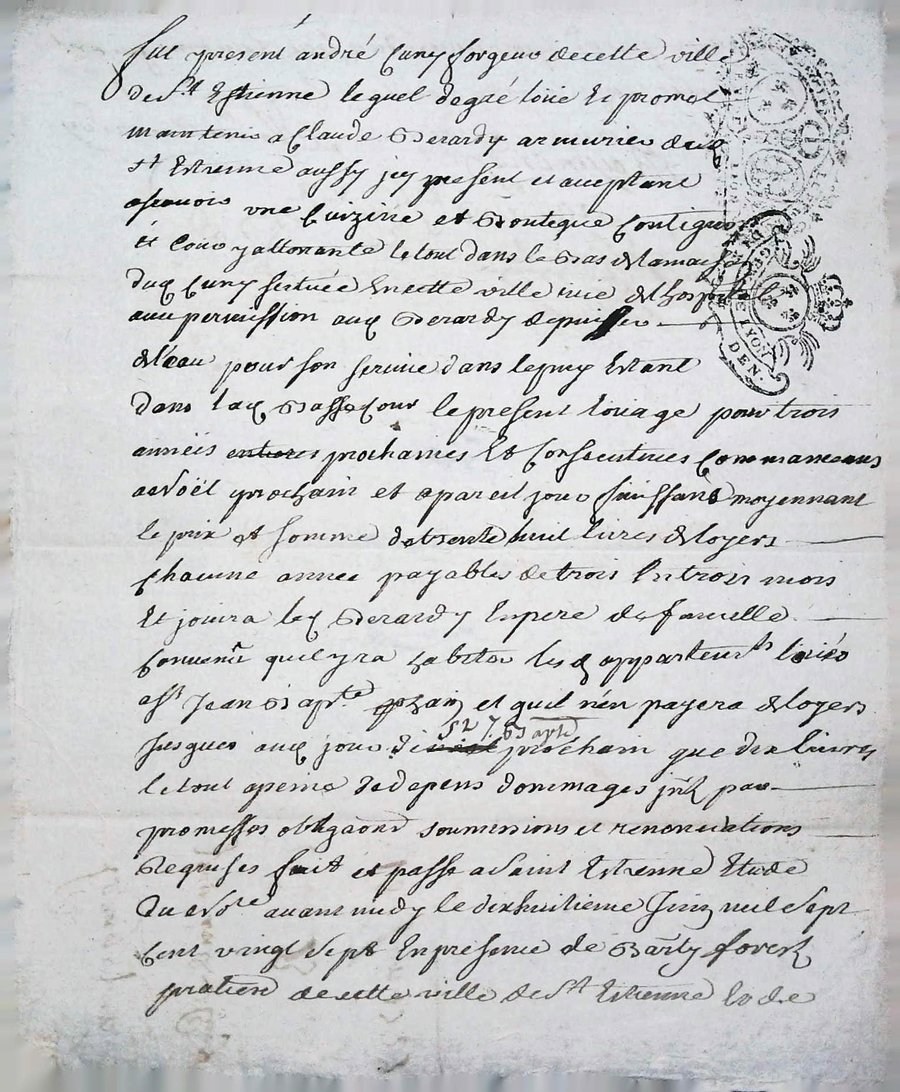 fut present andré Cuny forgeur de cette ville
de St Estienne lequel de gré loüe et promet
maintenir a Claude Berardy armurier dud
st Estienne aussy icy present et acceptant
ascavoir une Cuizine et Boutique Contigue
et Cour y attenante le tout dans le Bas de la maison
dud Cuny scituée en cette ville rue de l'hospital
avec permission aud Berardy de puiser
de l'eau pour son service dans le puy Estant
dans lad Basse Cour le present loüage pour trois
années entieres prochaines Et Consecutives Commanceans
a Noël prochain et a pareil jour finissans moyennant
le prix et somme de trente huit livres de loyers
Chacune année payables de trois En trois mois
Et joüira led Berardy En pere de famille
Convenu quil yra habiter lesd appartements loüés
a St Jean Bapte et quil n'en payera de loyers
St J. Bapte
jusques aud jour prochain que dix livres
le tout a peine de depens dommages par
promesses obligaons soumissions et renonciations
Requises fait et passé a Saint Estienne Etude
du Nore avant midy le dixhuitieme Juin mil sept
Cent vingt sept En presence de Barly forest
praticien de cette ville de St Estienne
DE LYON
DEN.